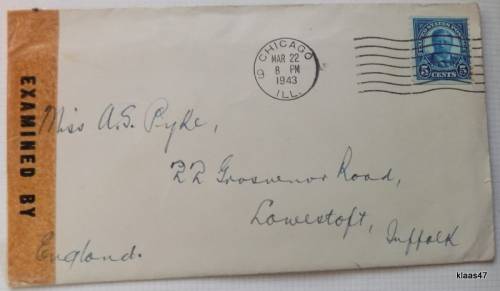 CHICAGO
9
MAR 22
8 PM
1943
ILL.
5 CENTS 5
EXAMINED BY
Miss A.S. Pyke,
22 Grosvenor Road,
Lowestoft,
Suffolk
England.
klaas47